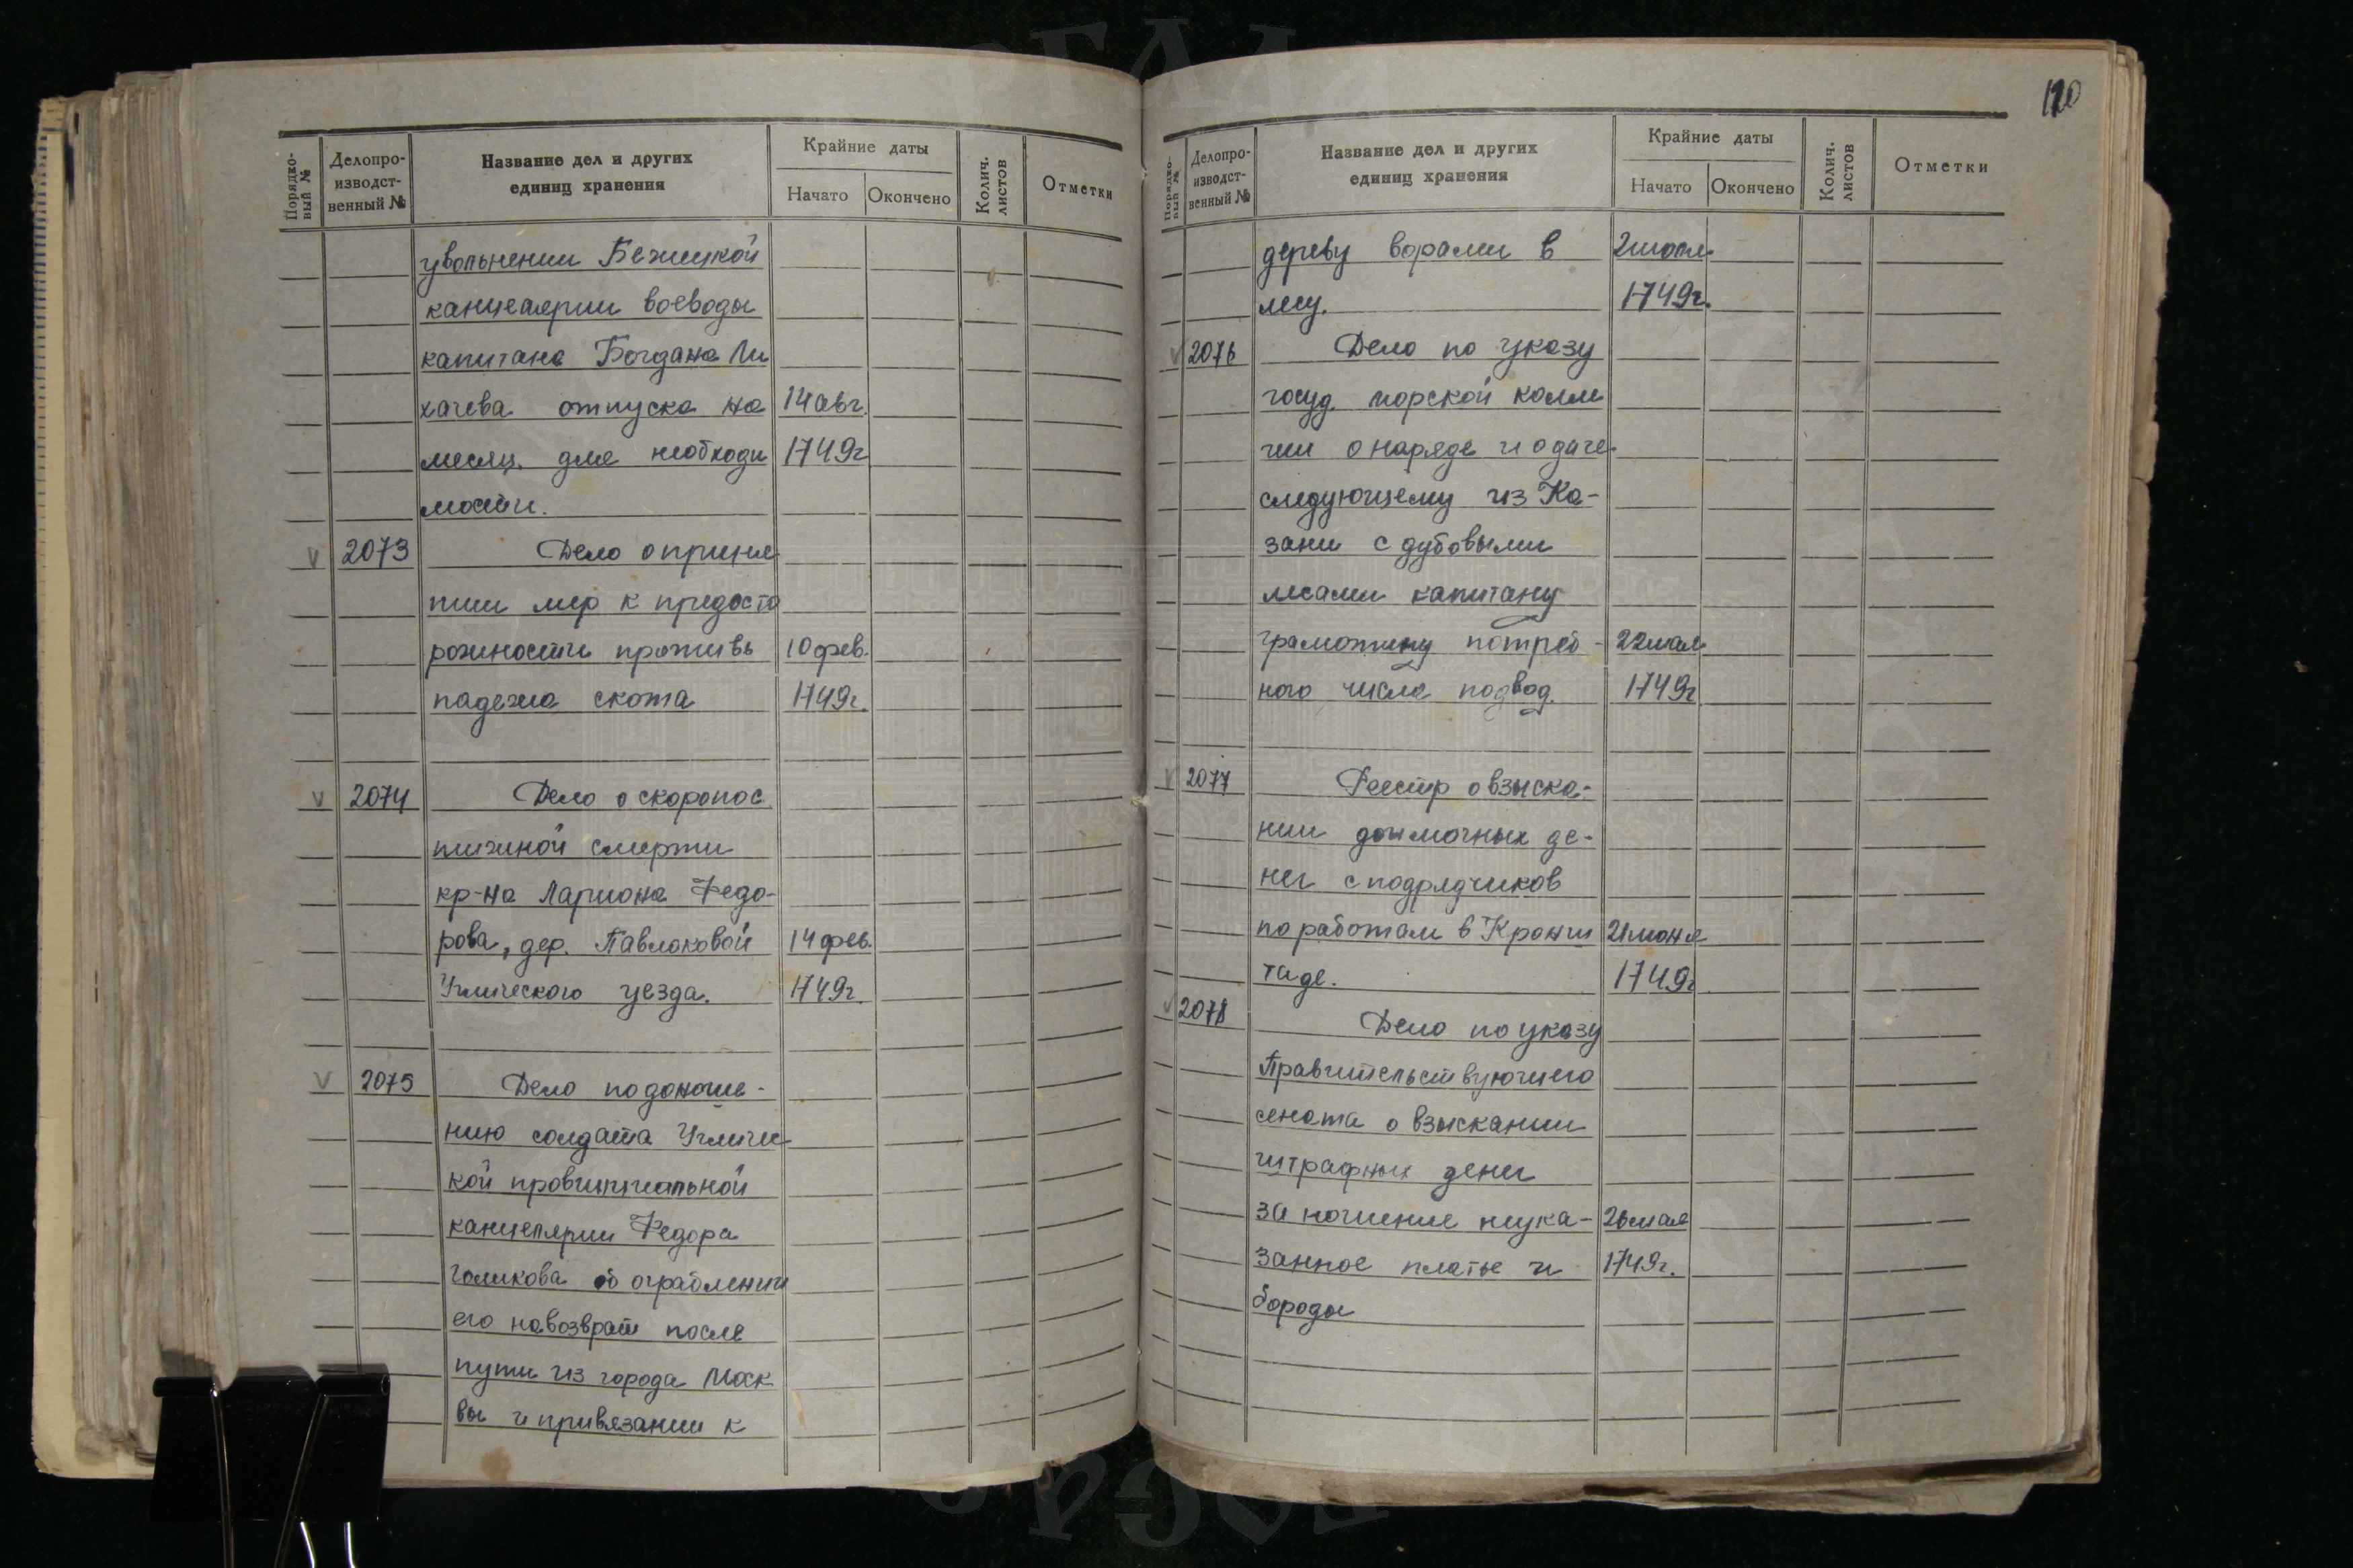 Порядко-
вый №
Делопро-
изводст-
венный №
Название дел и других
единиц хранения
Крайние даты
Начато
Окончено
Колич.
листов
Отметки
увольнении Бежицкой
канцелярии воеводы
капитана Богдана Ли
хачева отпуска на 14 авг.
месяц для необходи 1749г
мости.
2073 Дело о приня
тии мер к предосто
рожности противъ 10 фев.
падежа скота 1749г.
2074 Дело о скоропос
тижной смерти
кр-на Лариона Федо-
рова, дер. Павлоковой 14 фев.
Угличского уезда. 1749г.
2075 Дело по доноше-
нию солдата Угличс
кой провинциальной
канцелярии Федора
Голикова об ограблении
его на возврат после
пути из города Моск
вы и привязании к
120
Порядко-
вый №
Делопро-
изводст-
венный №
Название дел и других
единиц хранения
Крайние даты
Начато
Окончено
Колич.
листов
Отметки
дереву ворами в
лесу. 1749г.
2076 Дело по указу
госуд. морской колле
гии о наряде и о даче
следующему из Ка-
зани с дубовыми
лесами капитану
Грамотину потреб- 22 мая
ного числа подвод. 1749г
2077 Реестр о взыска-
нии доимочных де-
нег с подрядчиков
по работам в Кронш 21 июня
таде. 1749г
2078 Дело по указу
Правительствующего
сената о взыскании
штрафных денег
за ношение неука- 26 мая
занное платье и 1749г.
бороды